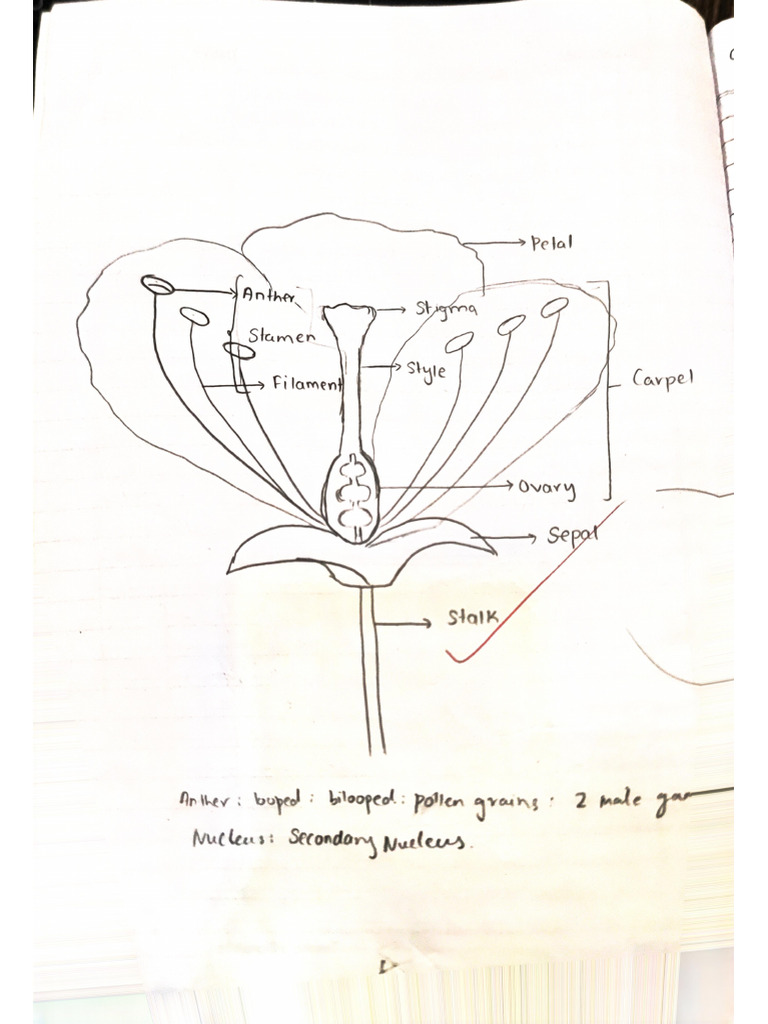 Petal
Anther
Stigma
Stamen
Style
Filament
Carpel
Ovary
Sepal
Stalk
Anther: boped: bilooped: pollen grains: 2 male
Nucleus: Secondary Nucleus.